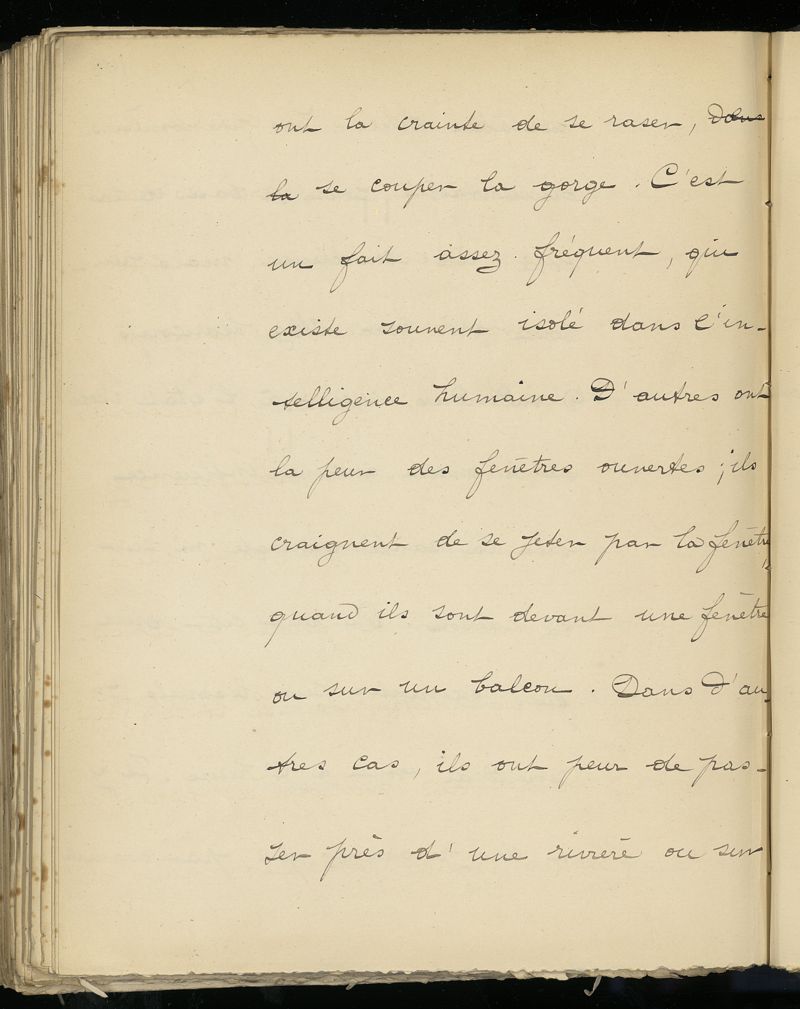 ont la crainte de se raser, dans
la se couper la gorge. C'est
un fait assez fréquent, qui
existe souvent isolé dans l'in-
telligence humaine. D'autres ont
la peur des fenêtres ouvertes ; ils
craignent de se jeter par la fenêtre,
quand ils sont devant une fenêtre
ou sur un balcon. Dans d'au-
tres cas, ils ont peur de pas-
ser près d'une rivière ou sur